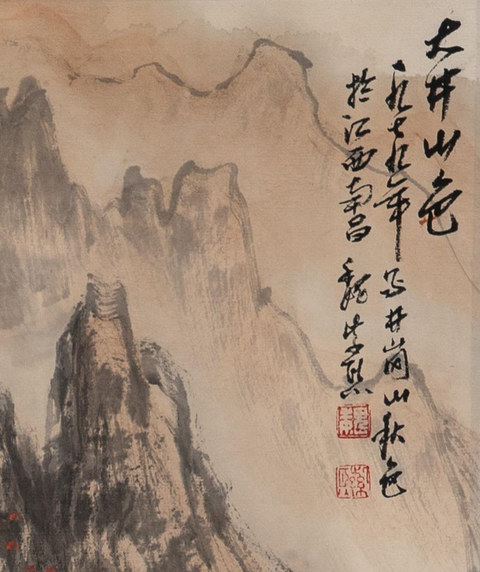 大井山色
一九七九年写井岗山秋色
於江西南昌魏紫熙